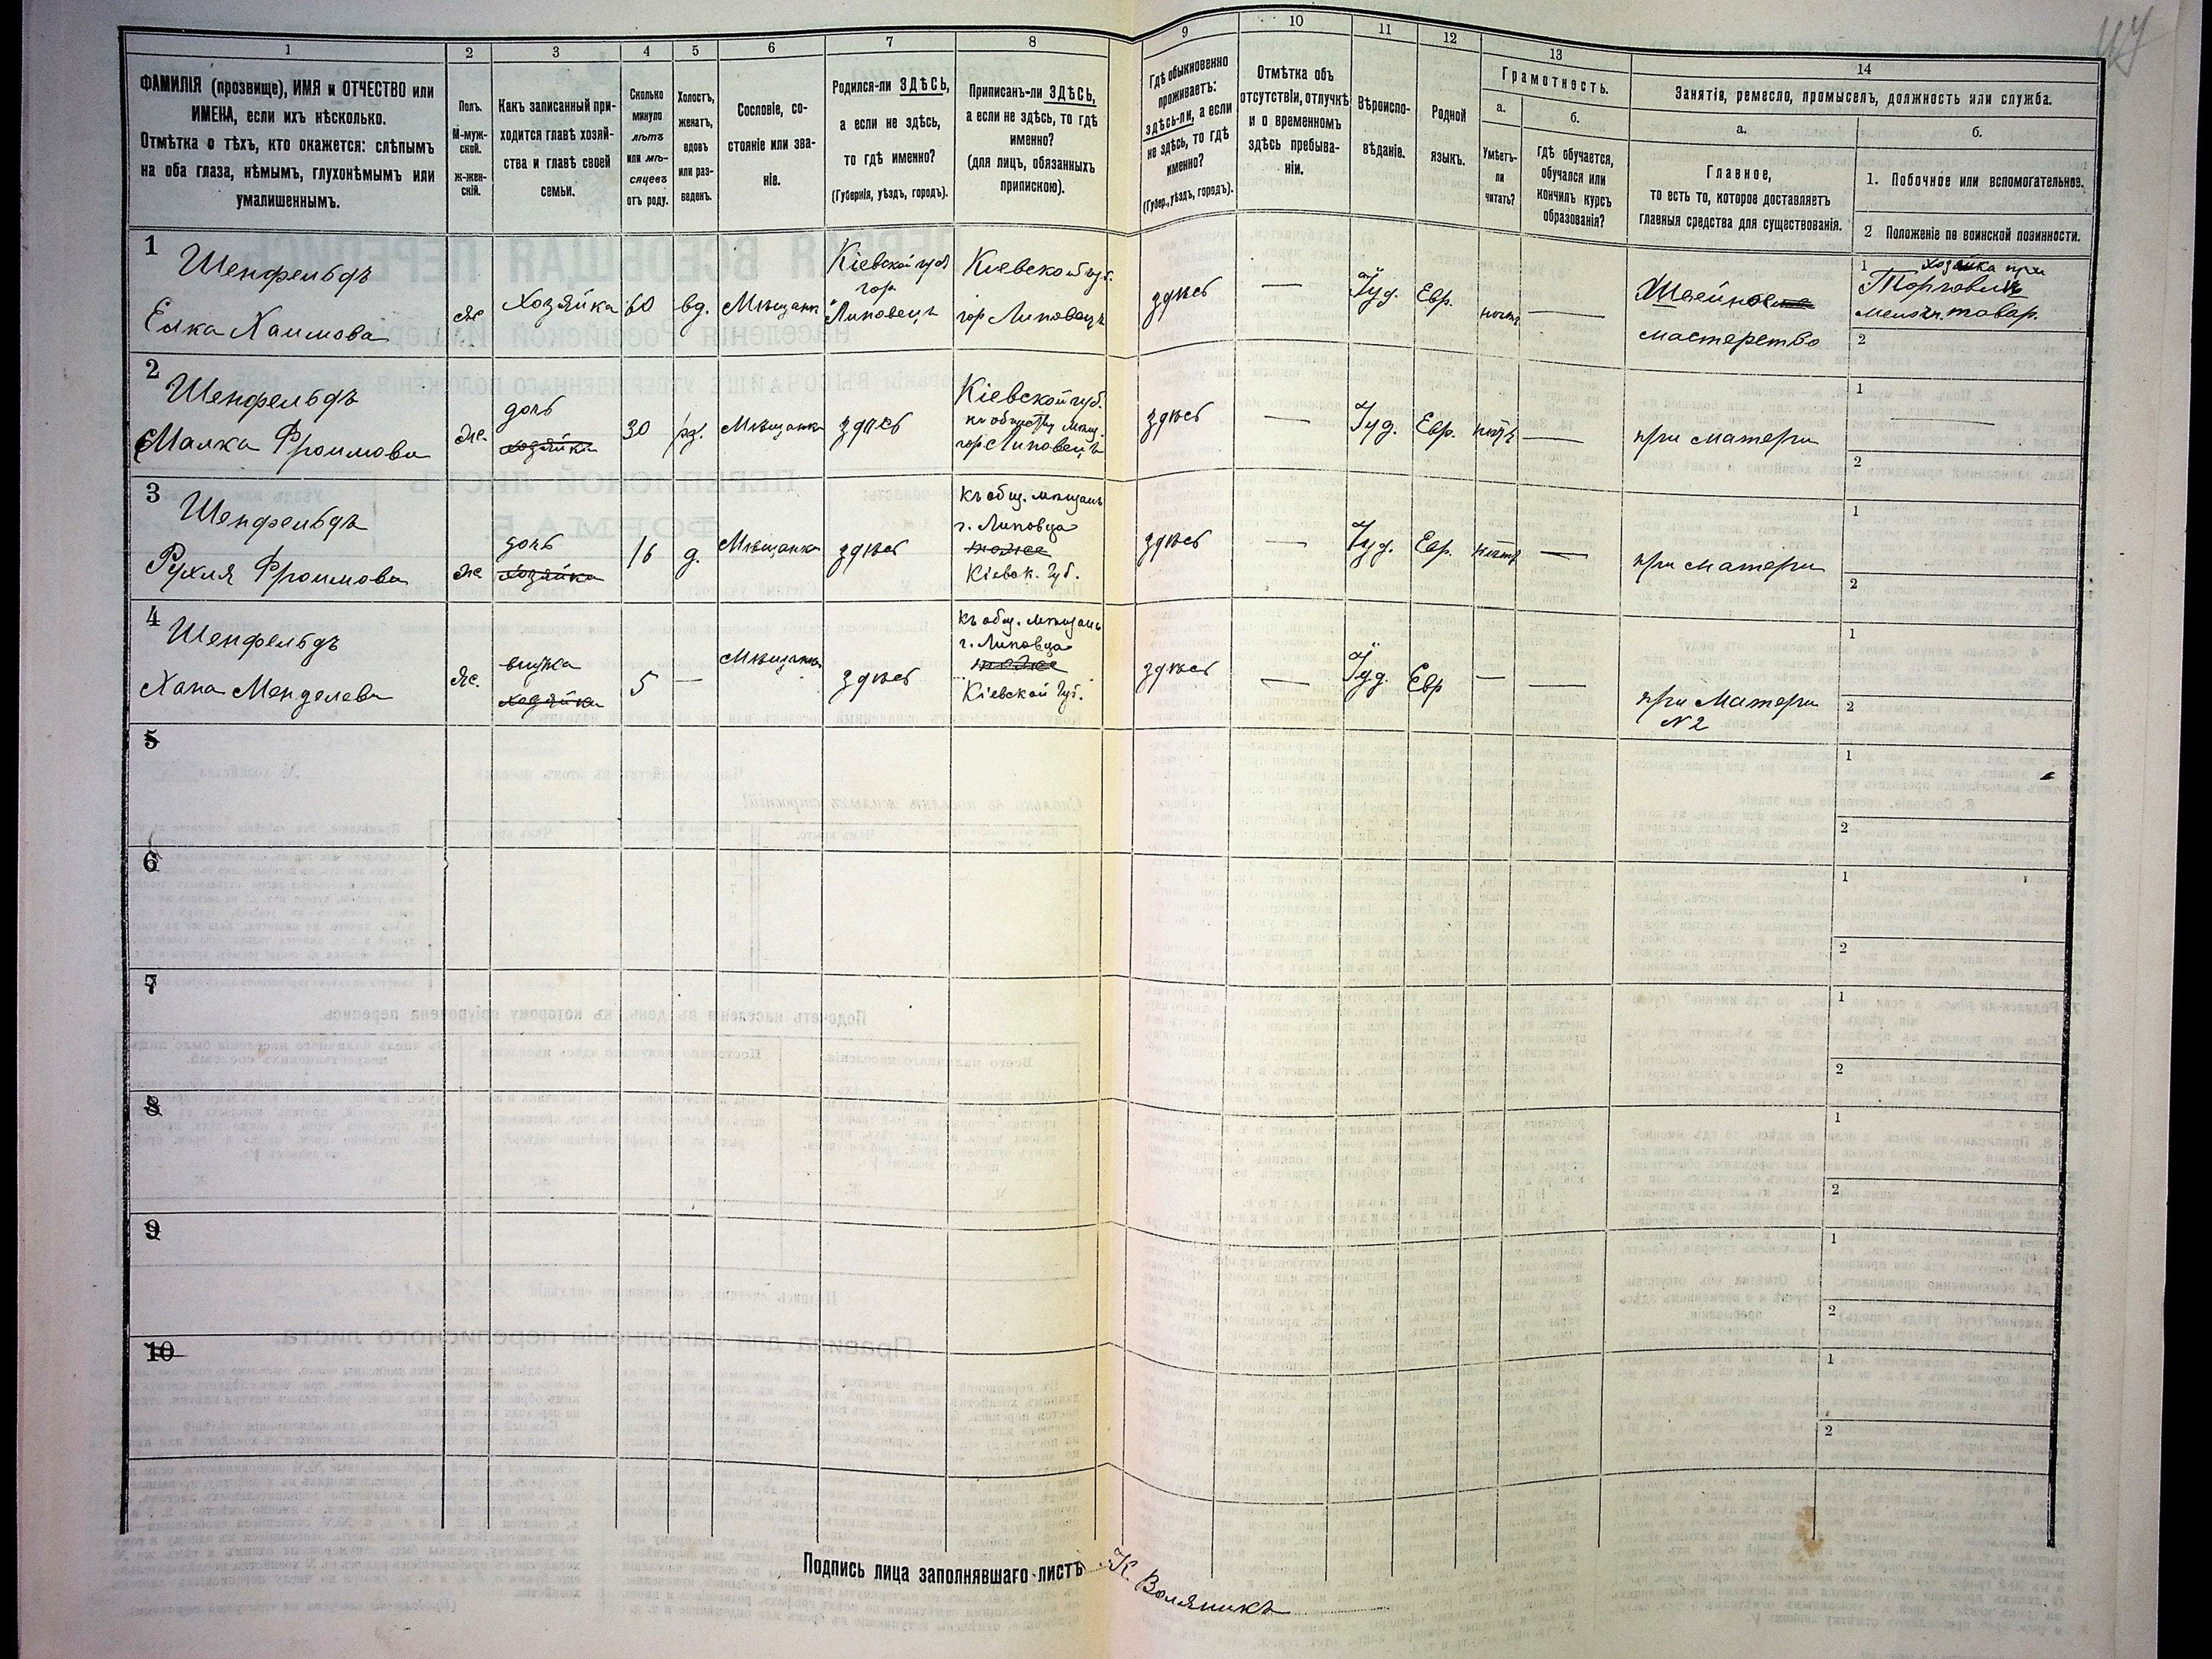 47
1 2 3 4 5 6 7 8 9 10 11 12 13 14
ФАМИЛІЯ (прозвище), ИМЯ и ОТЧЕСТВО или
ИМЕНА, если ихъ нѣсколько.
Отмѣтка о тѣхъ, кто окажется: слѣпымъ
на оба глаза, нѣмымъ, глухонѣмымъ или
умалишеннымъ.
Полъ.
М-муж-
ской.
Ж-жен-
скій.
Какъ записанный при-
ходится главѣ хозяй-
ства и главѣ своей
семьи.
Сколько
минуло
лѣтъ
или мѣ-
сяцевъ
отъ роду.
Холостъ,
женатъ,
вдовъ
или раз-
веденъ.
Сословіе, со-
стояніе или зва-
ніе.
Родился-ли ЗДѢСЬ,
а если не здѣсь,
то гдѣ именно?
(Губернія, уѣздъ, городъ).
Приписанъ-ли ЗДѢСЬ,
а если не здѣсь, то гдѣ
именно?
(для лицъ, обязанныхъ
припискою).
Гдѣ обыкновенно
проживаетъ:
здѣсь-ли, а если
не здѣсь, то гдѣ
именно?
(Губер., уѣздъ, городъ).
Отмѣтка объ
отсутствіи, отлучкѣ
и о временномъ
здѣсь пребыва-
ніи.
Вѣроиспо-
вѣданіе.
Родной
языкъ.
Грамотность.
а.
Умѣетъ-
ли
читать?
б.
гдѣ обучается,
обучался или
кончилъ курсъ
образованія?
Занятія, ремесло, промыселъ, должность или служба.
а.
Главное,
то есть то, которое доставляетъ
главныя средства для существованія.
б.
1. Побочное или вспомогательное.
2 Положеніе по воинской повинности.
1
Шенфельдъ
Елка Хаимова
ж
Хозяйка
60
вд.
Мѣщанк
Кіевской губ
гор
Липовецъ
Кіевской губ.
гор Липовецъ
здѣсь
—
Іуд.
Евр.
нѣтъ
—
Швейное
мастерство
1
хозяйка при
Торговли
мелочн. товар.
2
2
Шенфельдъ
Малка Фроимова
ж.
дочь
хозяйка
30
рз.
Мѣщанка
здѣсь
Кіевской губ.
гор Липовецъ
здѣсь
—
Іуд.
Евр.
нѣтъ
—
при матери
1
—
2
3
Шенфельдъ
Рухля Фроимова
ж
дочь
хозяйка
16
д.
Мѣщанка
здѣсь
къ общ. мѣщанъ
г. Липовца
Кіевск. Губ.
здѣсь
—
Іуд.
Евр.
нѣтъ
—
при матери
1
2
4
Шенфельдъ
Хана Менделева
ж.
внучка
хозяйка
5
—
Мѣщанка
здѣсь
къ общ. мѣщанъ
г. Липовца
Кіевской Губ.
здѣсь
—
Іуд.
Евр
—
—
при Матери
N 2
1
2
5
1
2
6
1
2
7
1
2
8
1
2
9
1
2
10
1
2
Подпись лица заполнявшаго листъ
К. Воляникъ